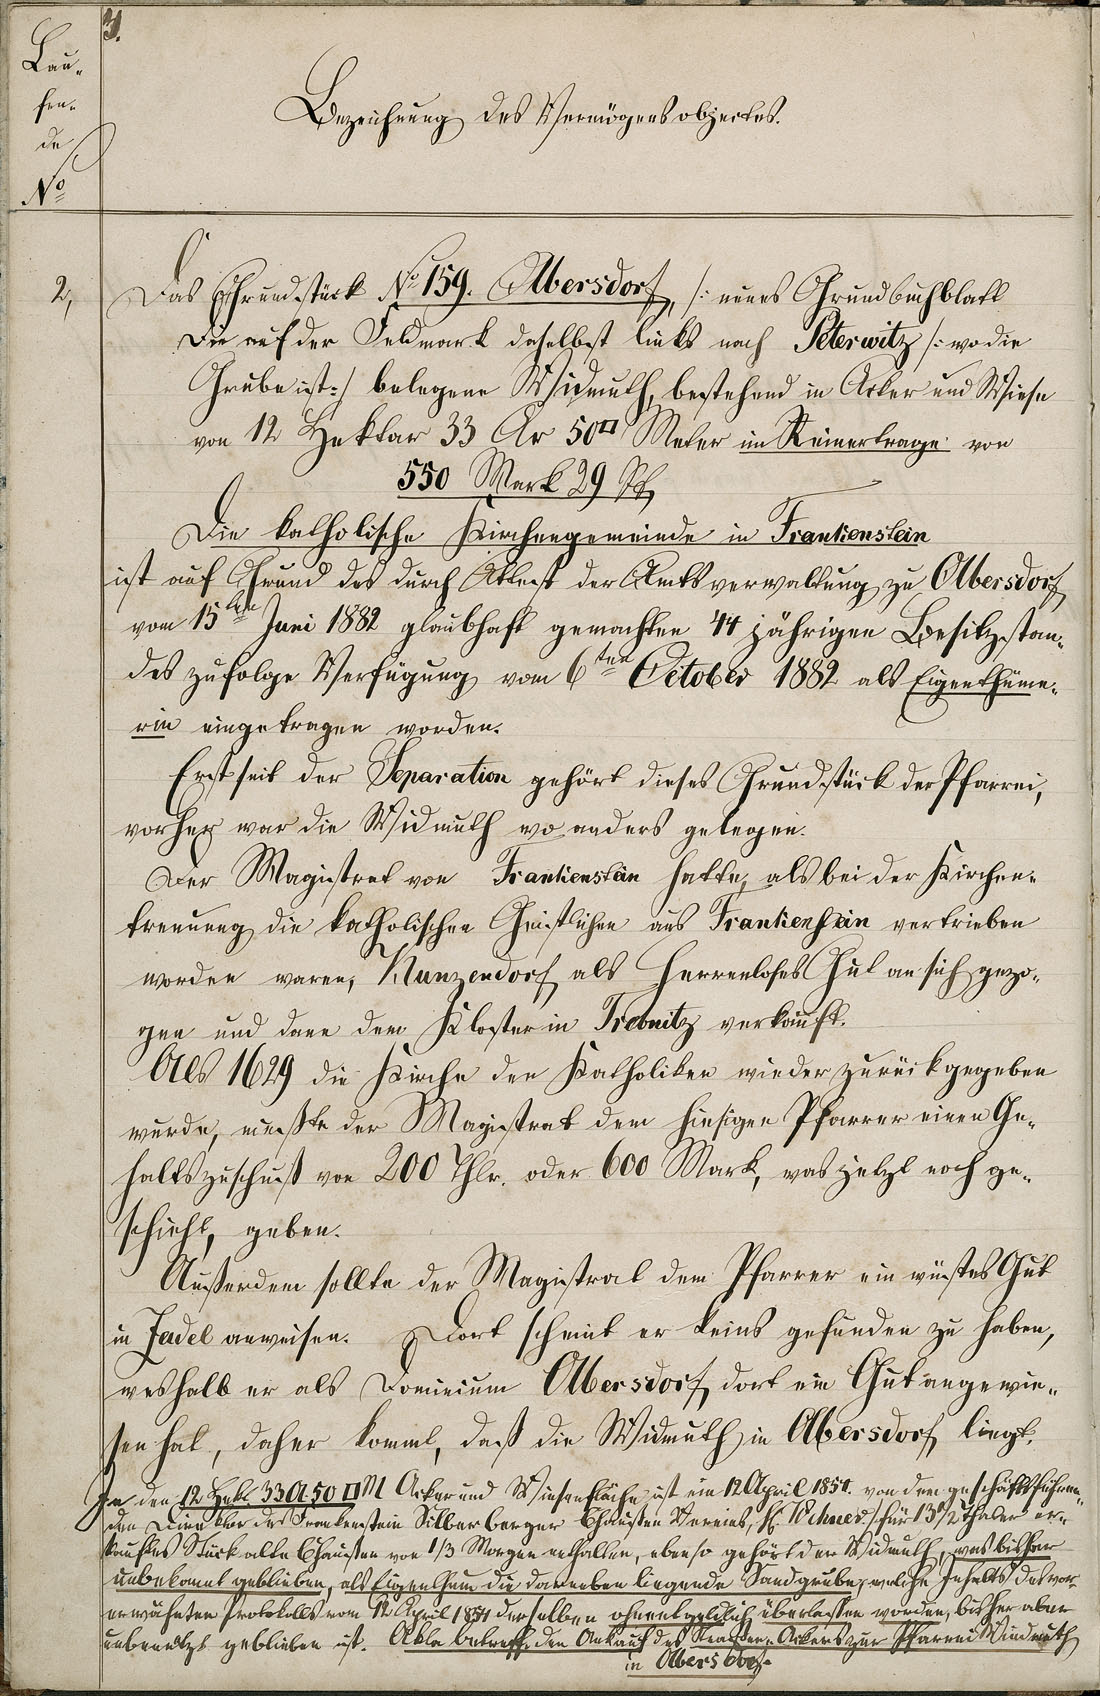 3.
Lau-
fen-
de
No
Bezeichnung des Vermögensobjectes.
2, Das Grundstück No 159. Olbersdorf, /: neues Grundbuchblatt
die auf der Feldmark daselbst links nach Peterwitz /: wo die
Grube ist :/ belegene Widmuth, bestehend in Acker und Wiese
von 12 Hektar 33 Ar 50 □ Meter im Reinertrage von
550 Mark 29 Pf,
Die katholische Kirchengemeinde in Frankenstein
ist auf Grund des durch Attest der Amtsverwaltung zu Olbersdorf
vom 15ten Juni 1882 glaubhaft gemachten 44 jährigen Besitzstan-
des zufolge Verfügung vom 6ten October 1882 als Eigenthüme-
rin eingetragen worden.
Erst seit der Separation gehört dieses Grundstück der Pfarrei,
vorher war die Widmuth wo anders gelegen.
Der Magistrat von Frankenstein hatte, als bei der Kirchen-
trennung die katholischen Geistlichen aus Frankenstein vertrieben
worden waren, Kunzendorf als herrenloses Gut an sich gezo-
gen und dann dem Kloster in Trebnitz verkauft.
Als 1629 die Kirche den Katholiken wieder zurückgegeben
wurde, mußte der Magistrat dem hiesigen Pfarrer einen Ge-
haltszuschuß von 200 Thlr. oder 600 Mark, was jetzt noch ge-
schieht, geben.
Außerdem sollte der Magistrat dem Pfarrer ein wüstes Gut
in Zadel anweisen. Dort scheint er keins gefunden zu haben,
weshalb er als Dominium Olbersdorf, dort ein Gut angewie-
sen hat, daher kommt, daß die Widmuth in Olbersdorf liegt.
In den 12 Hekt 33 A 50 □ M Acker und Wiesenfläche ist ein 12 April 1851. von dem geschäftsführen-
den Direktor des Frankenstein Silberberger Chaußee Vereins, für 13 1/2 Thaler er-
kauftes Stück alte Chaußee von 1/3 Morgen enthalten, ebenso gehört der Widmuth, was bisher
unbekannt geblieben, als Eigenthum die daneben liegende Sandgrube, welche Inhalts des vor-
erwähnten Protokolls vom 12 April 1851 derselben ohnentgeldlich überlassen worden, bisher aber
unbenutzt geblieben ist. Akta betreff. den Ankauf des Straßen-Ackers zur Pfarrei Windmuth
in Olbersdorf.